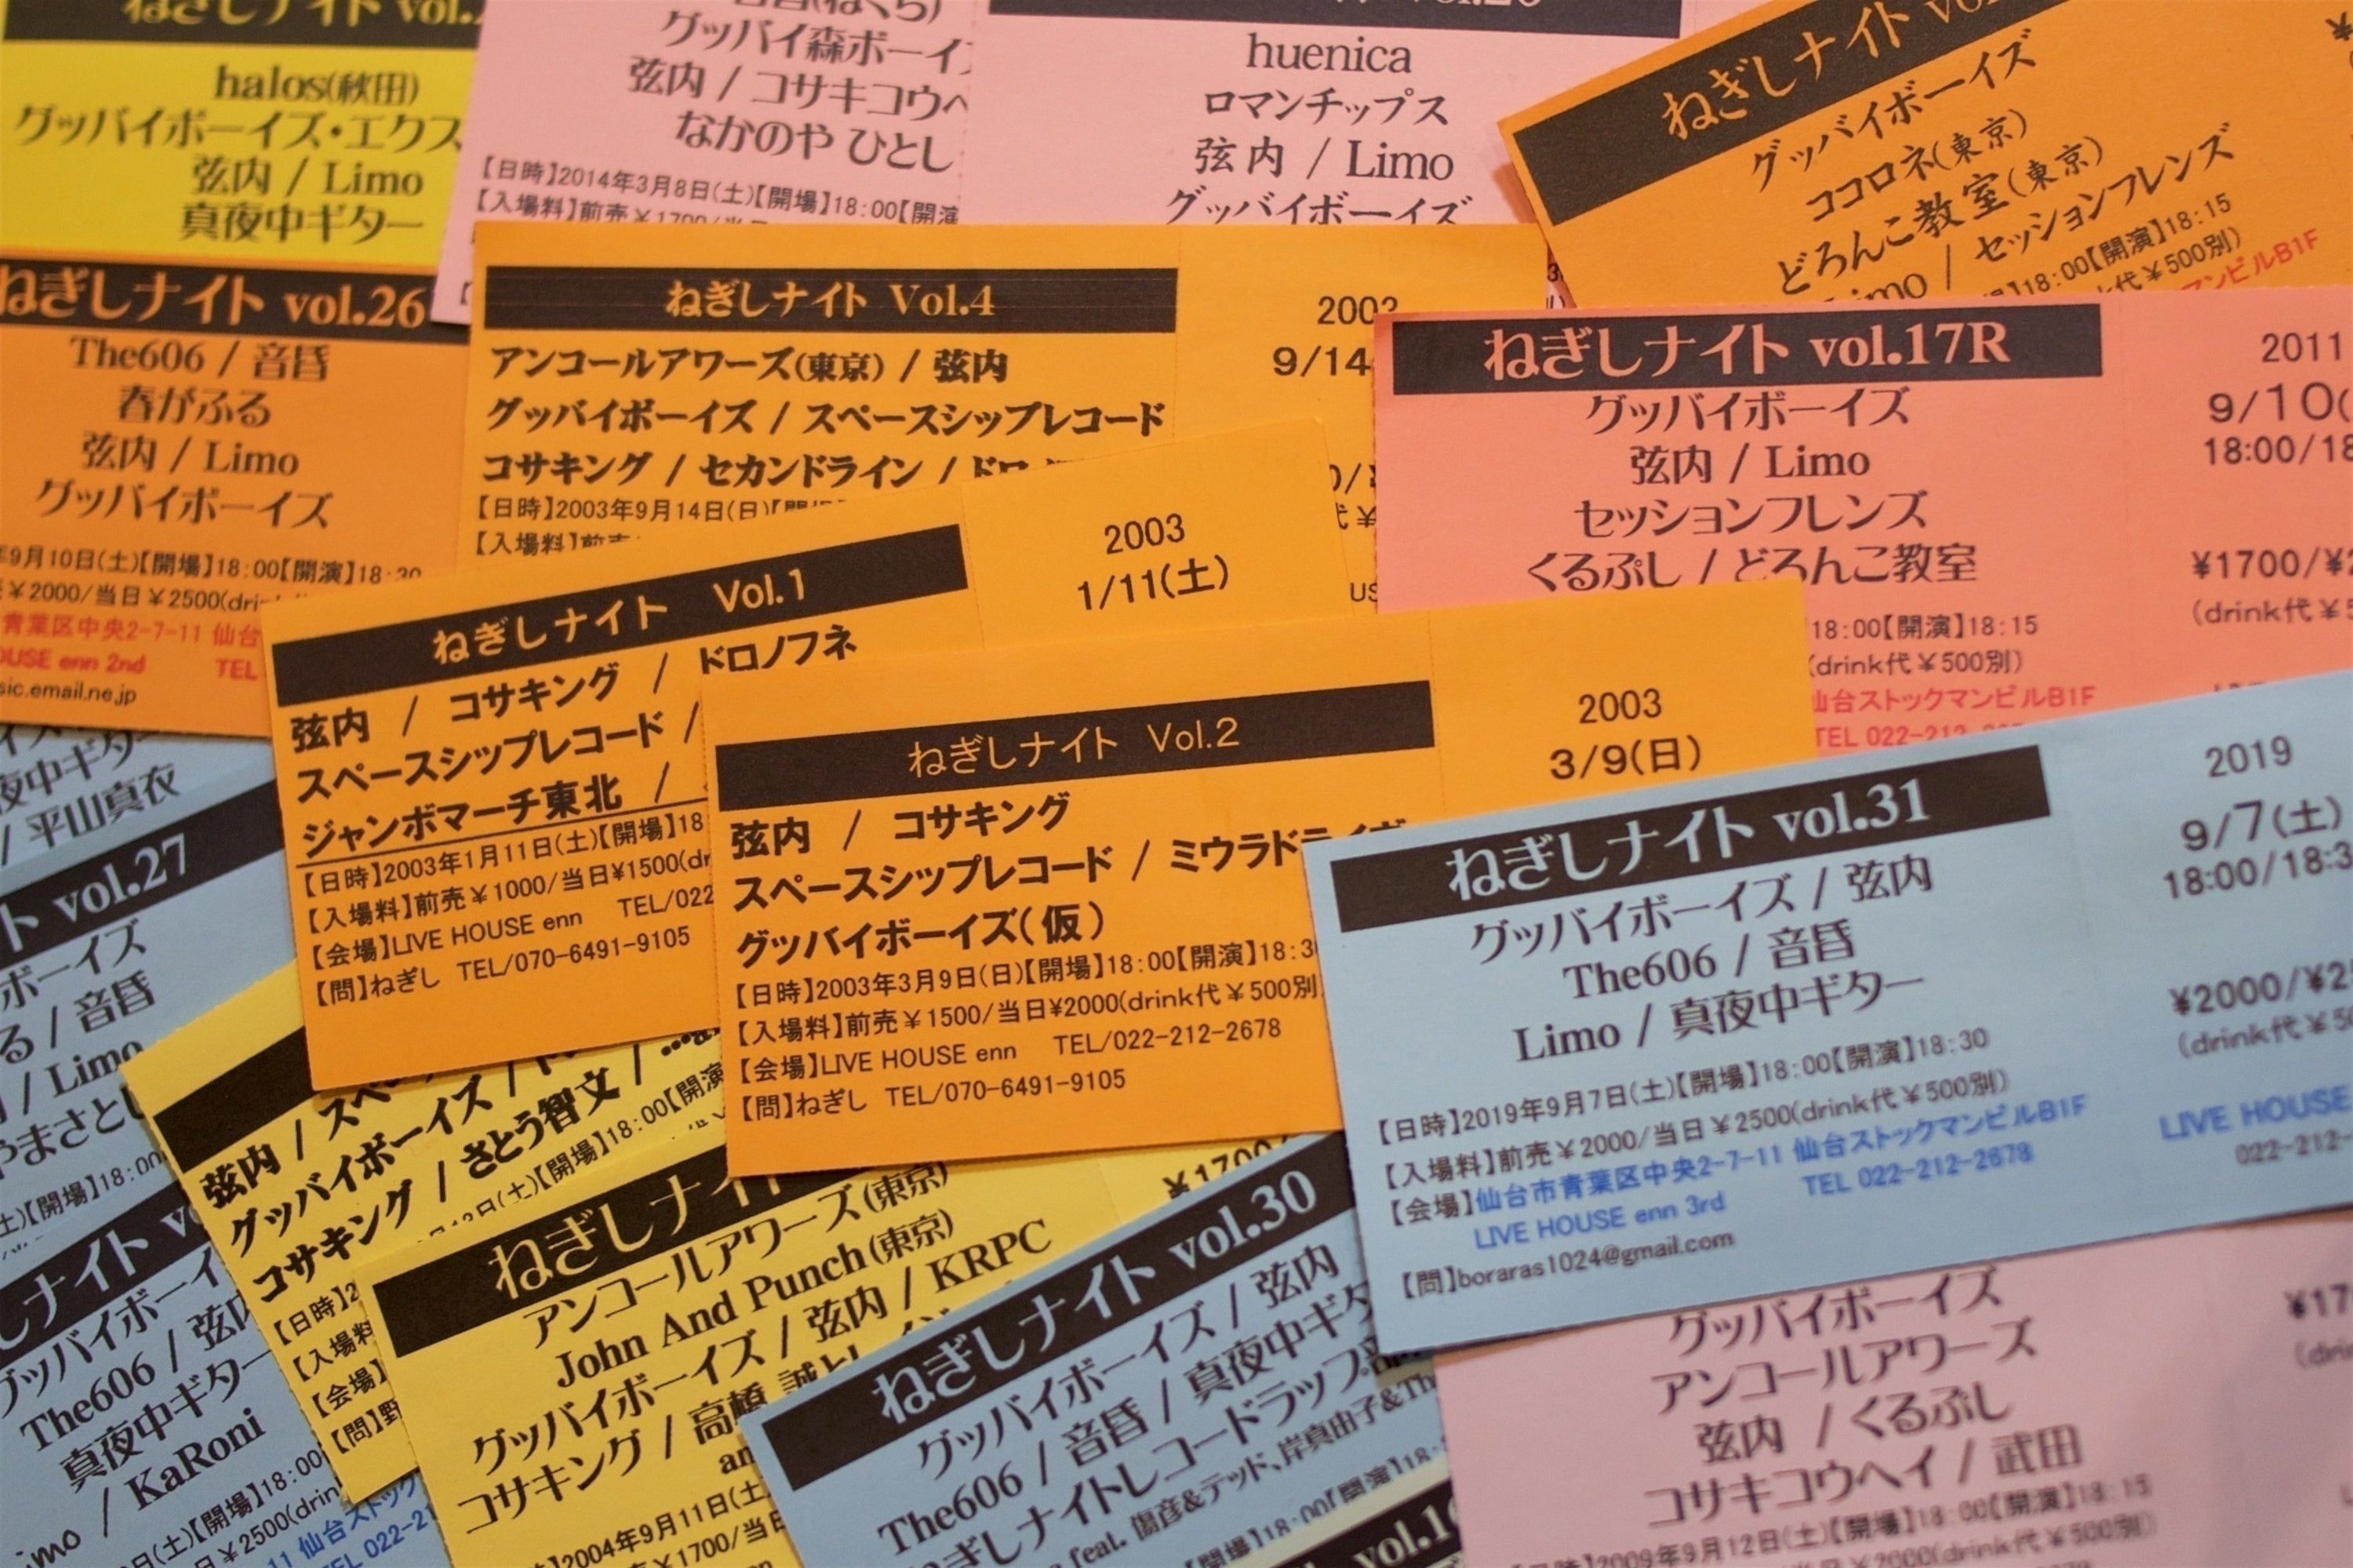 ねぎしナイト vol.
halos(秋田)
グッバイボーイズ・エクス
弦内 / Limo
真夜中ギター
グッバイ森ボーイ
弦内 / コサキコウヘ
なかのや ひとし
【日時】2014年3月8日(土)【開場】18:00【開演
【入場料】前売¥1700/当
huenica
ロマンチップス
弦内 / Limo
グッバイボーイズ
ねぎしナイト
グッバイボーイズ
ココロネ(東京)
どろんこ教室(東京)
Limo / セッションフレンズ
18:00【開演】18:15
代¥500別)
マンビルB1F
ねぎしナイト vol.26
The606 / 音昏
春がふる
弦内 / Limo
グッバイボーイズ
年9月10日(土)【開場】18:00【開演】18:30
¥2000/当日¥2500(dri
青葉区中央2-7-11 仙台
OUSE enn 2nd TEL
sic.email.ne.jp
ねぎしナイト Vol.4
アンコールアワーズ(東京) / 弦内
グッバイボーイズ / スペースシップレコード
コサキング / セカンドライン / ドロ
【日時】2003年9月14日(日)【開
【入場料】前売
2003
9/14
ねぎしナイト vol.17R
グッバイボーイズ
弦内 / Limo
セッションフレンズ
くるぷし / どろんこ教室
18:00【開演】18:15
(drink代¥500別)
仙台ストックマンビルB1F
TEL 022-212
2011
9/10(
18:00/18
¥1700/¥2
(drink代¥5
ねぎしナイト Vol.1
弦内 / コサキング / ドロノフネ
スペースシップレコード /
ジャンボマーチ東北 /
【日時】2003年1月11日(土)【開場】18
【入場料】前売¥1000/当日¥1500(dr
【会場】LIVE HOUSE enn TEL/022
【問】ねぎし TEL/070-6491-9105
2003
1/11(土)
ねぎしナイト Vol.2
弦内 / コサキング
スペースシップレコード / ミウラドライブ
グッバイボーイズ(仮)
【日時】2003年3月9日(日)【開場】18:00【開演】18:3
【入場料】前売¥1500/当日¥2000(drink代¥500別
【会場】LIVE HOUSE enn TEL/022-212-2678
【問】ねぎし TEL/070-6491-9105
2003
3/9(日)
ねぎしナイト vol.31
グッバイボーイズ / 弦内
The606 / 音昏
Limo / 真夜中ギター
【日時】2019年9月7日(土)【開場】18:00【開演】18:30
【入場料】前売¥2000/当日¥2500(drink代¥500別)
【会場】仙台市青葉区中央2-7-11 仙台ストックマンビルB1F
LIVE HOUSE enn 3rd TEL 022-212-2678
【問】boraras1024@gmail.com
2019
9/7(土)
18:00/18:3
¥2000/¥25
(drink代¥50
LIVE HOUSE
022-212-
夜中ギター
/ 平山真衣
ト vol.27
ボーイズ
る / 音昏
/ Limo
やまさとし
土)【開場】18:00
ナイト
グッバイボーイ
The606 / 弦内
真夜中ギター
/ KaRoni
(土)【開場】18:00
¥2500(drin
11 仙台ストック
TEL 022-21
弦内 / スペ
グッバイボーイズ /
コサキング / さとう智文 /
(土)【開場】18:00【開演
【日時】2
【入場料
【会場】
【問】野
ねぎしナイト
アンコールアワーズ(東京)
John And Punch(東京)
グッバイボーイズ / 弦内 / KRPC
コサキング / 高橋 誠
2004年9月11日(土
¥1700/当日
¥1700/
ねぎしナイト vol.30
グッバイボーイズ / 弦内
The606 / 音昏 / 真夜中ギタ
ねぎしナイトレコードラップ部
feat. 閻彦&テッド、岸真由子&Th
【開場】18:00【開演】18:
vol.1
グッバイボーイズ
アンコールアワーズ
弦内 / くるぷし
コサキコウヘイ / 武田
2009年9月12日(土)【開場】18:00【開演】18:15
¥2000(drink代¥500別)
¥17
(drin